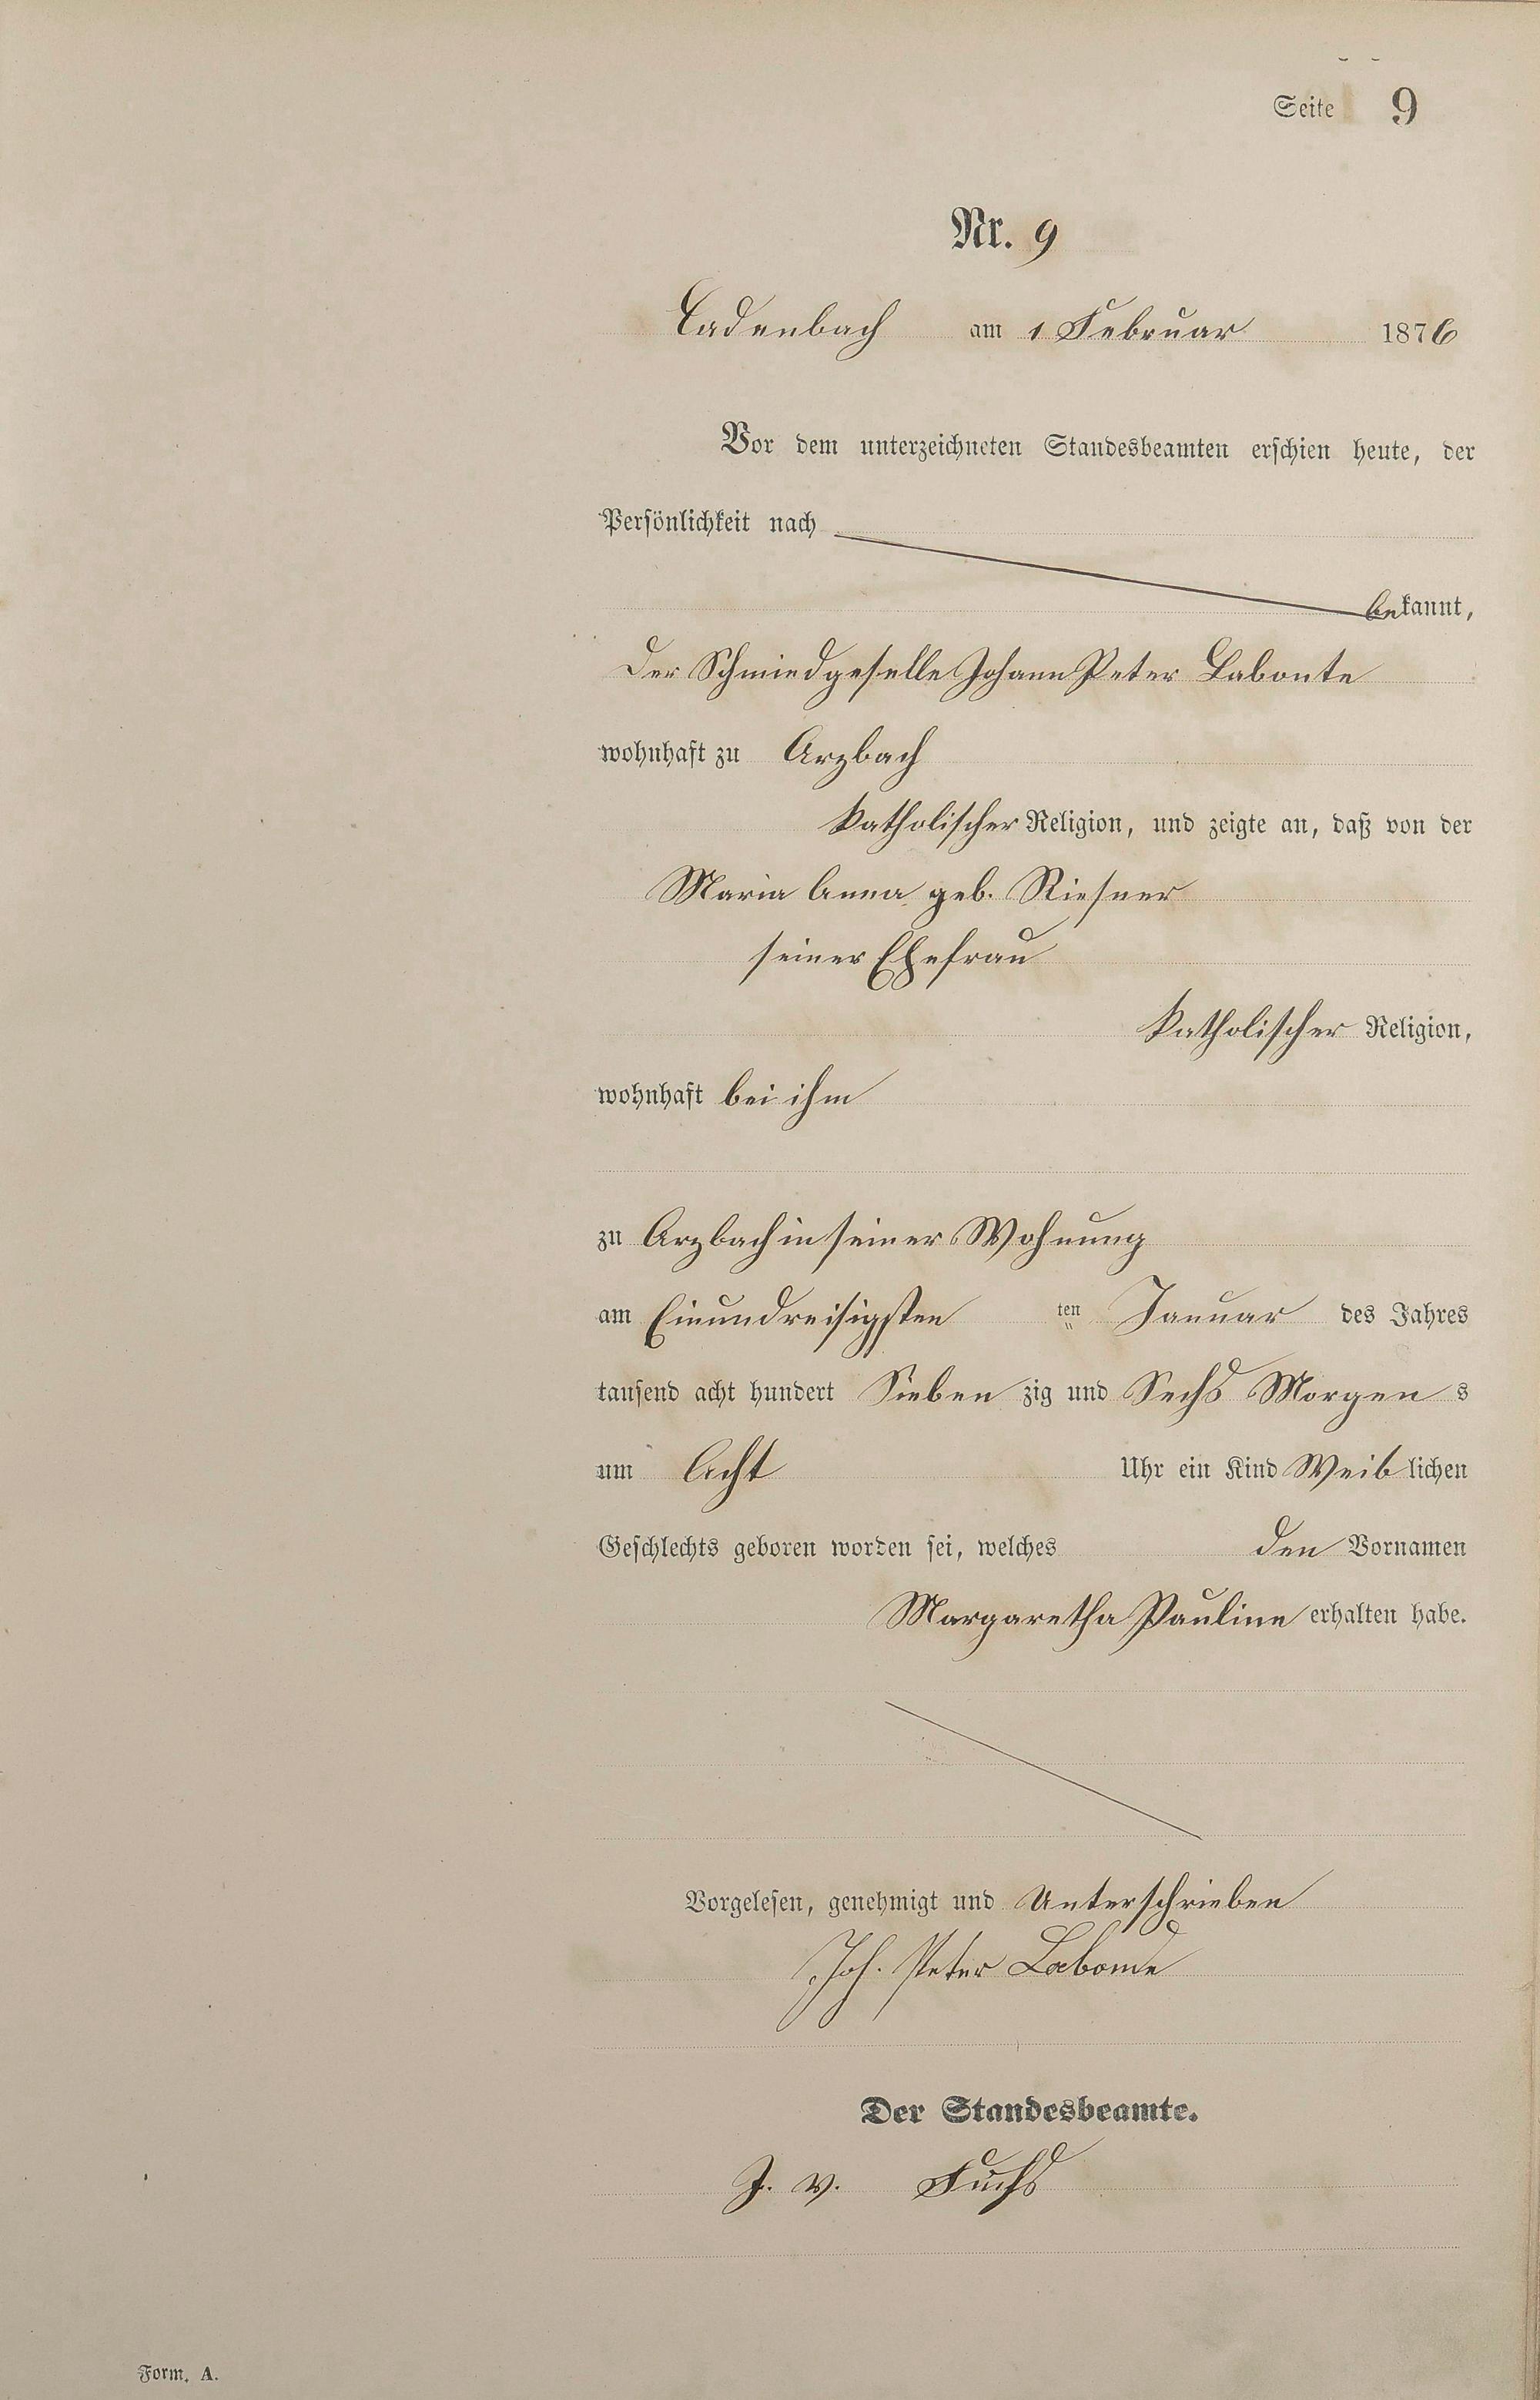 Seite 9
Nr. 9
Cadenbach am 1 Februar 1876
Vor dem unterzeichneten Standesbeamten erschien heute, der
Persönlichkeit nach
bekannt,
Der Schmiedgeselle Johann Peter Labonte
wohnhaft zu Arzbach
katholischer Religion, und zeigte an, daß von der
Maria Anna geb. Riesner
seiner Ehefrau
katholischer Religion,
wohnhaft bei ihm
zu Arzbach in seiner Wohnung
am Einundreisigsten ten Januar des Jahres
tausend acht hundert Sieben zig und Sechs Morgen s
um Acht Uhr ein Kind Weib lichen
Geschlechts geboren worden sei, welches den Vornamen
Margaretha Pauline erhalten habe.
Vorgelesen, genehmigt und Unterschrieben
Joh. Peter Labonde
Der Standesbeamte.
J. v. Fuchs
Form. A.